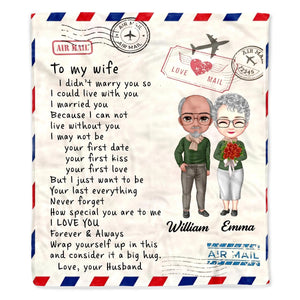 AIR MAIL
AIR MAIL
To my wife
LOVE MAIL
I didn't marry you so
I could live with you
I married you
Because I can not
live without you
I may not be
your first date
your first kiss
your first love
But I just want to be
Your last everything
Never forget
How special you are to me
I LOVE YOU
Forever & Always
Wrap yourself up in this
and consider it a big hug.
Love, your Husband
William
Emma
AIR MAIL